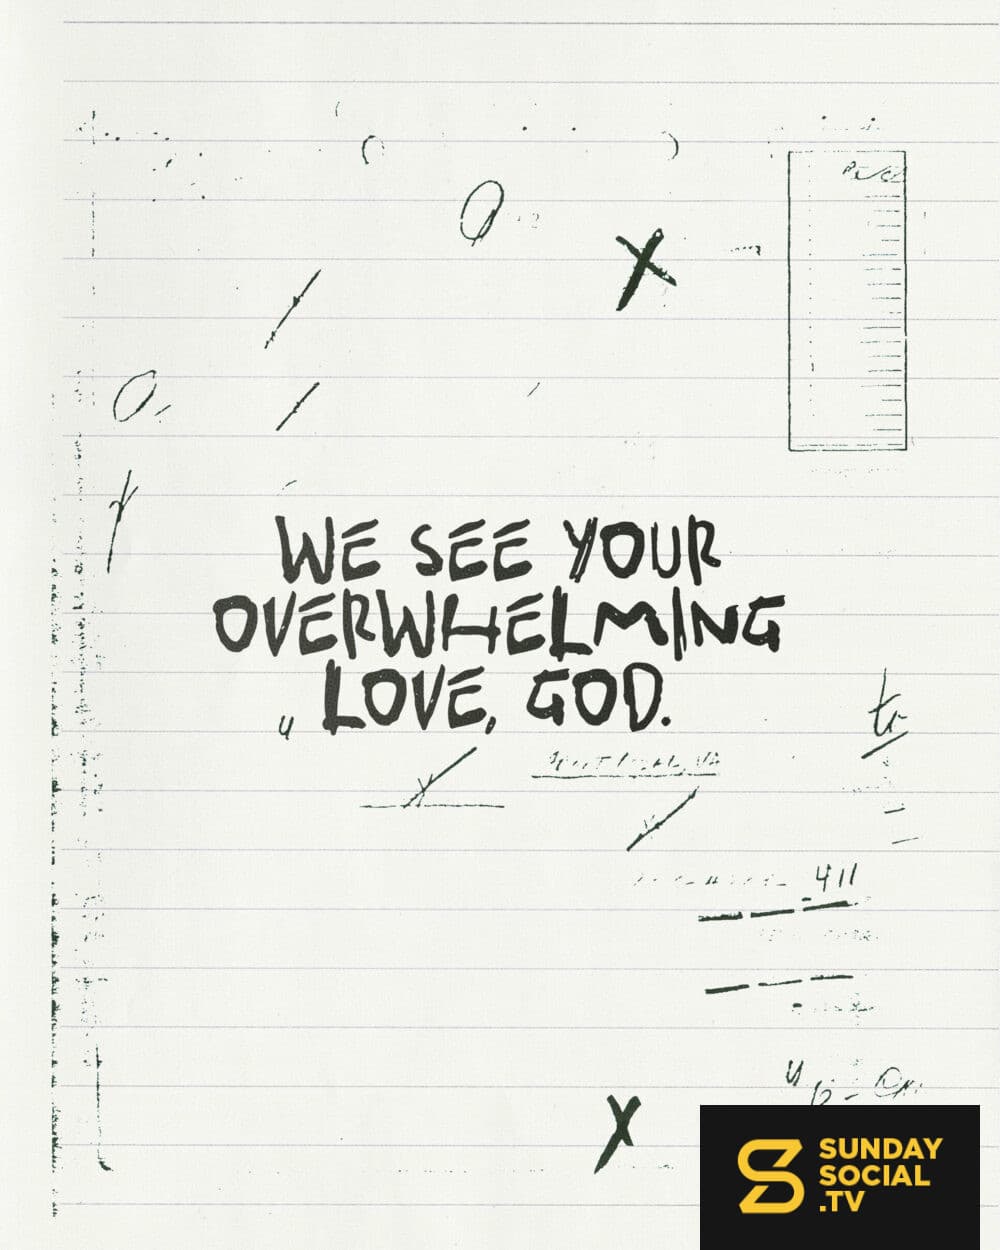 WE SEE YOUR
OVERWHELMING
LOVE, GOD.
411
SUNDAY
SOCIAL
.TV